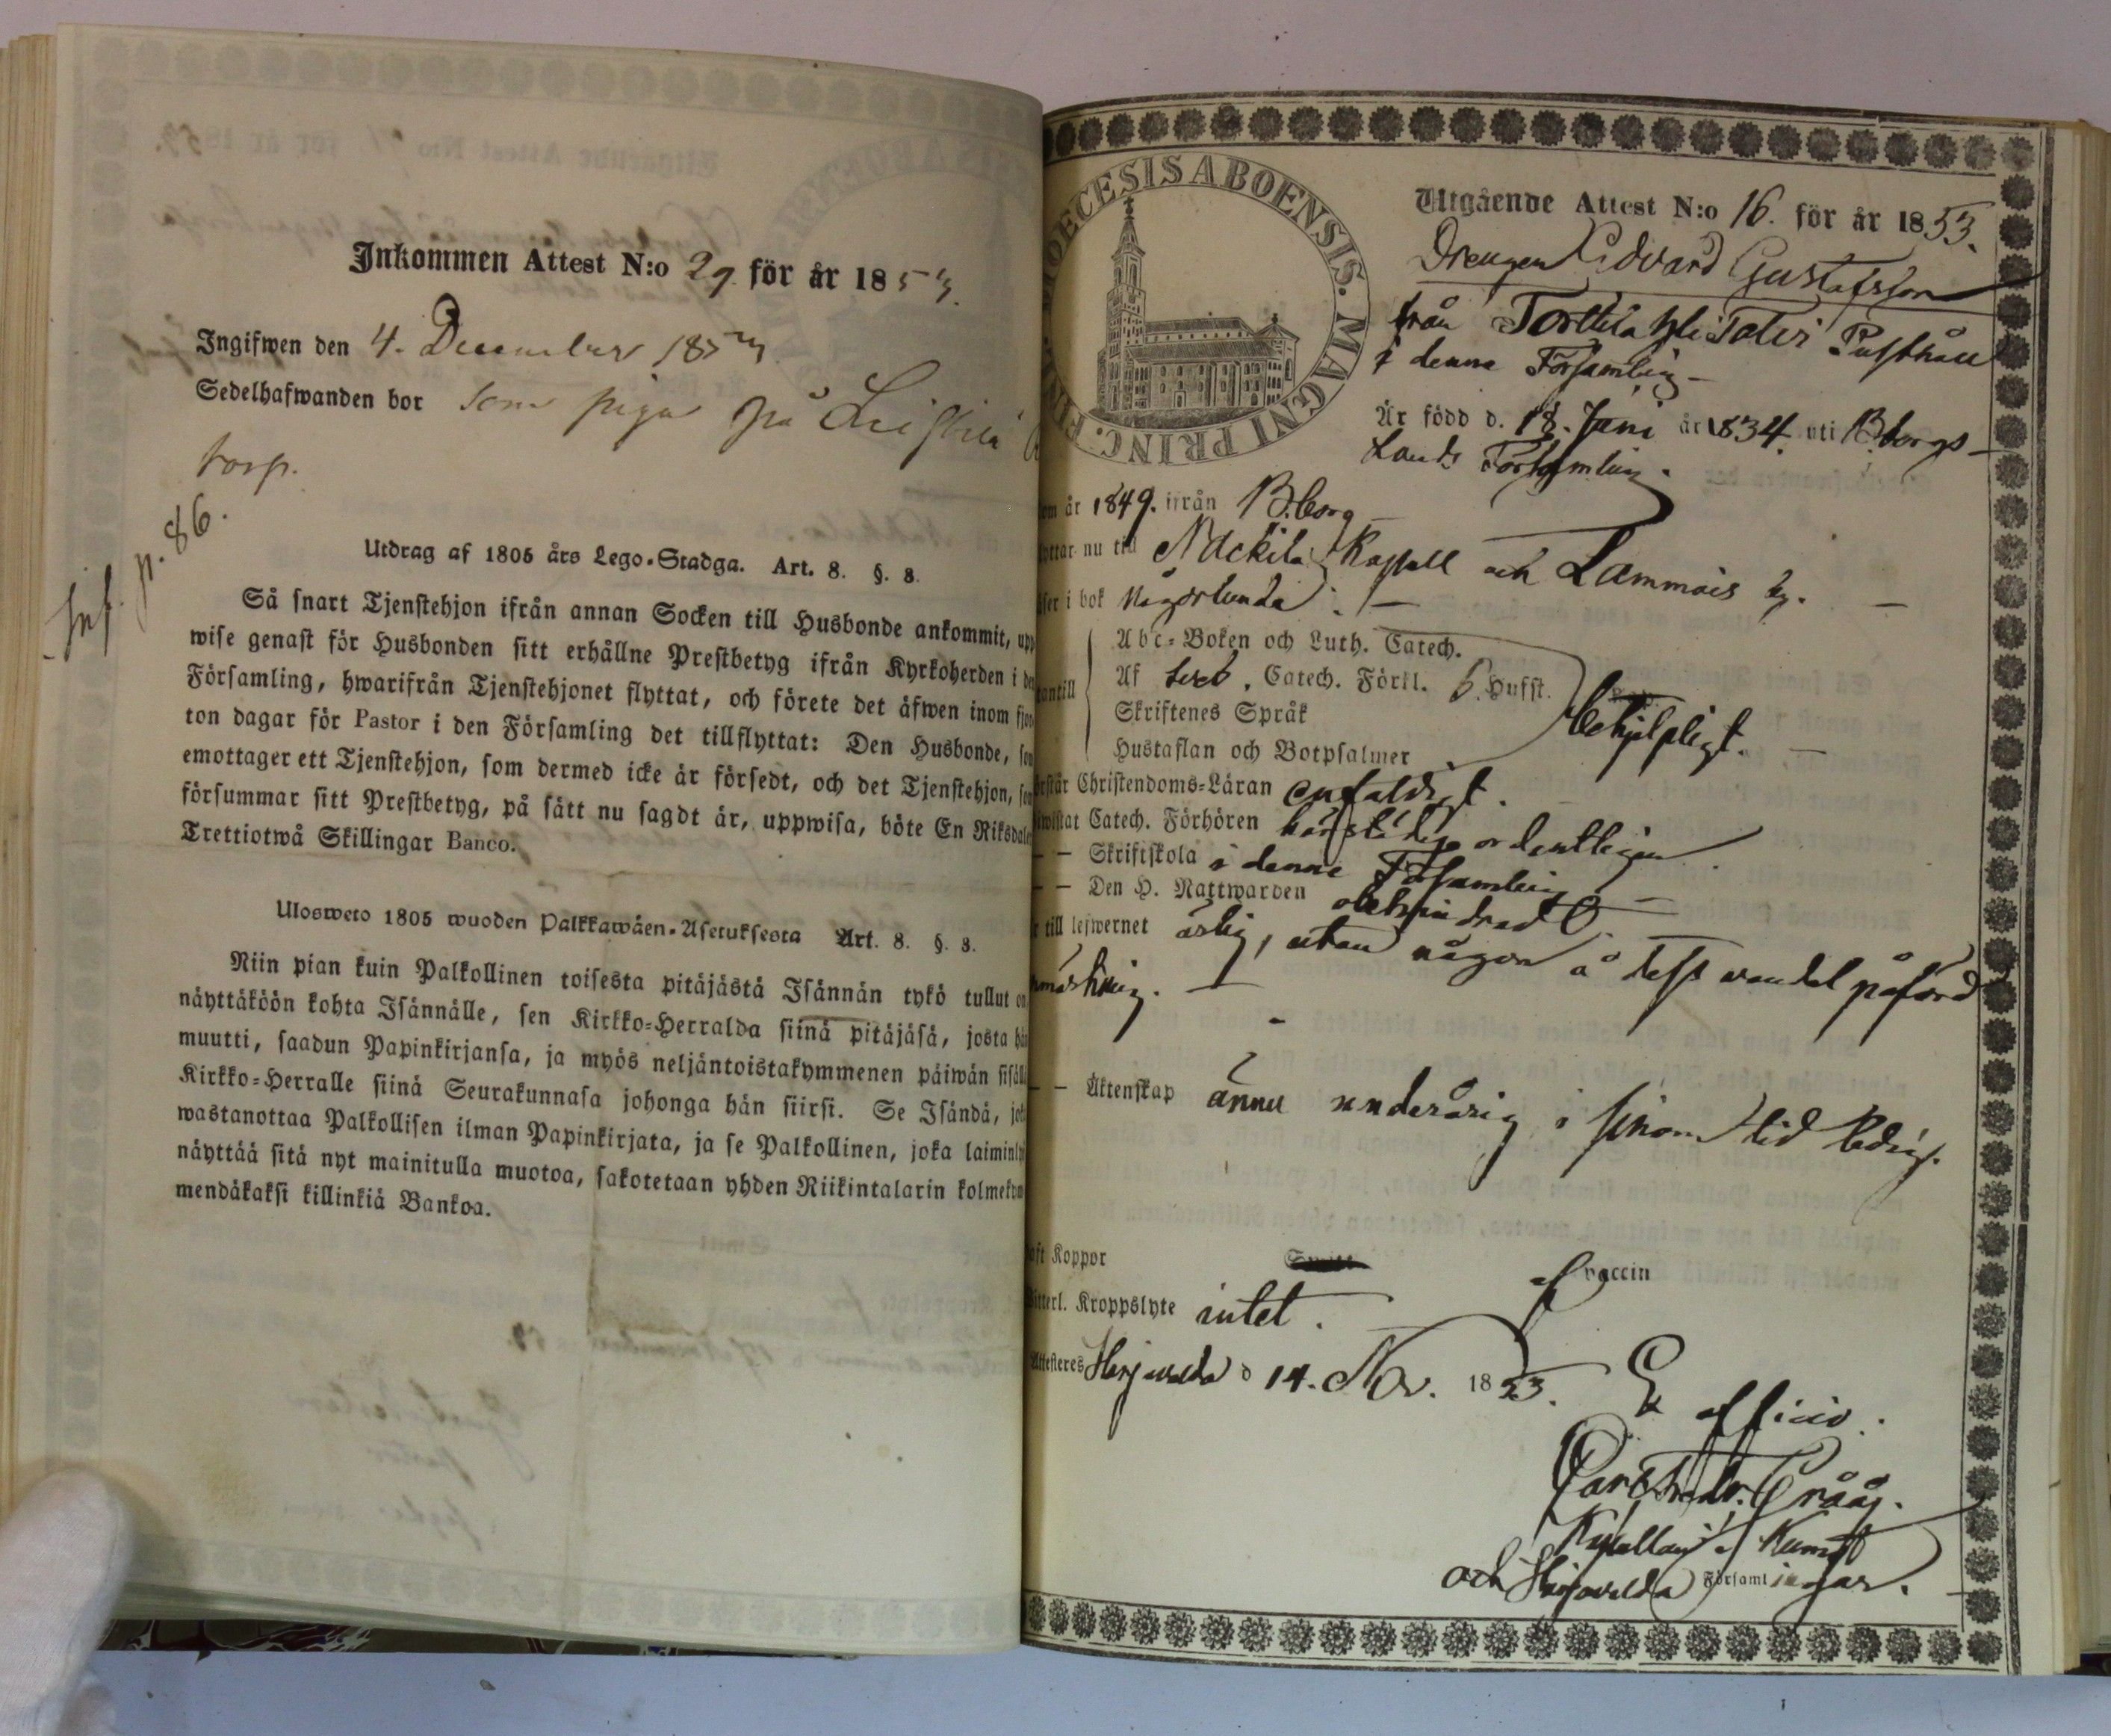 Inkommen Attest N:o 29 för år 1853.
Ingifwen den 4. December 1853
Sedelhafwanden bor som piga på
torp.
Inf. p. 86.
Utdrag af 1805 års Lego-Stadga. Art. 8. §. 8.
Så snart Tjenstehjon ifrån annan Socken till Husbonde ankommit, upp
wise genast för Husbonden sitt erhållne Prestbetyg ifrån Kyrkoherden i den
Församling, hwarifrån Tjenstehjonet flyttat, och förete det äfwen inom fjor
ton dagar för Pastor i den Församling det tillflyttat: Den Husbonde, som
emottager ett Tjenstehjon, som dermed icke är försedt, och det Tjenstehjon, som
försummar sitt Prestbetyg, på sätt nu sagdt är, uppwisa, böte En Riksdaler
Trettiotwå Skillingar Banco.
Ulosweto 1805 wuoden Palkkawäen-Asetuksesta Art. 8. §. 8.
Niin pian kuin Palkollinen toisesta pitäjästä Isännän tykö tullut on
näyttäköön kohta Isännälle, sen Kirkko-Herralda siinä pitäjäsä, josta hän
muutti, saadun Papinkirjansa, ja myös neljäntoistakymmenen päiwän sisällä
Kirkko-Herralle siinä Seurakunnasa johonga hän siirsi. Se Isändä, joka
wastanottaa Palkollisen ilman Papinkirjata, ja se Palkollinen, joka laiminlyö
näyttää sitä nyt mainitulla muotoa, sakotetaan yhden Riikintalarin kolmekym
mendäkaksi killinkiä Bankoa.
DIOECESIS ABOENSIS. MAGNI PRINC. FINL.
Utgående Attest N:o 16. för år 1853.
Drengen Edvard Gustafsson
från Torttila by Talvi Rusthåll
i denna Församling
Är född d. 18. Juni år 1834. uti B:borgs
Lands Församling.
om år 1849. ifrån B:borg
yttar nu till Nackila Kapell och Lammais by.
äser i bok någorlunda.
utantill
Abc-Boken och Luth. Catech.
Af Sveb. Catech. Förkl. 6. Hufst.
Skriftenes Språk
Hustaflan och Botpsalmer
behjelpligt.
örstår Christendoms-Läran enfaldigt.
iwistat Catech. Förhören härstädes ordentligen
— — Skriftskola i denna Församling
— — Den H. Nattwarden obehindrad
r till lefwernet ärlig, utan någon å dess vandel påförd
anmärkning.
— — Äktenskap ännu underårig, i sinom tid ledig.
aft Koppor af vaccin
itterl. Kroppslyte intet.
Attesteres Harjavalda d 14. Nov. 1853. Ex officio.
Carl Fredr. Grååj.
Kapellan i Kumo
och Harjavalda Församlingar.